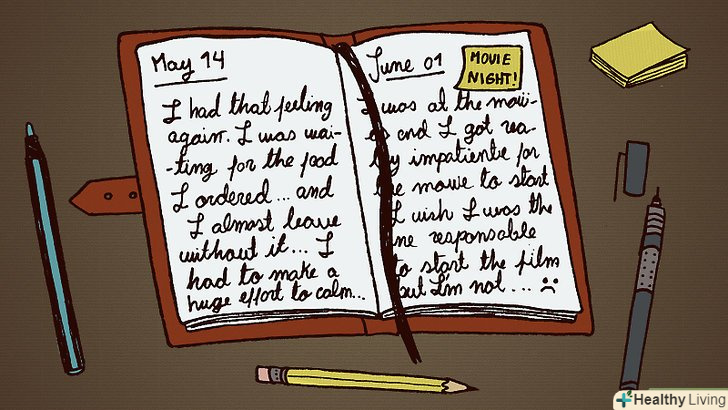 May 14
I had that feeling
again. I was wai-
-ting for the food
I ordered... and
I almost leave
without it... I
had to make a
huge effort to calm...
June 01
MOVIE
NIGHT!
I was at the movi-
es and I got rea-
lly impatiente for
the movie to start
I wish I was the
one responsable
to start the film
but I'm not... :(
Healthy Living